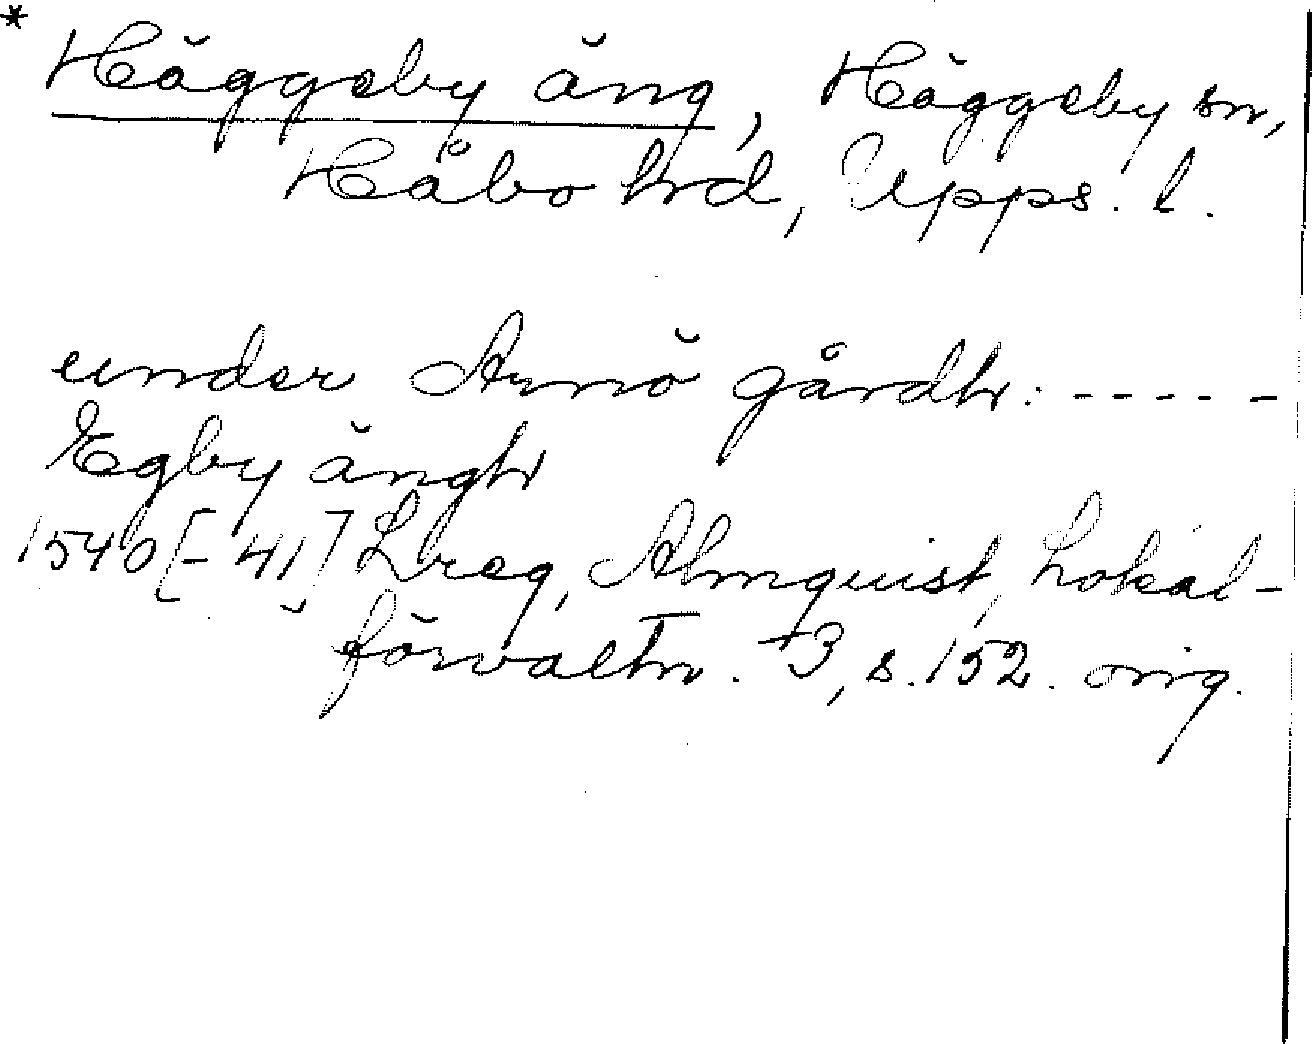 * Häggeby äng, Häggeby sn,
Håbo hd, Upps. l.
under Arnö gårdh: - - - - -
Egby ängh
1540[-41] Lreg, Almquist, Lokal-
förvaltn. 3, s. 152. orig.